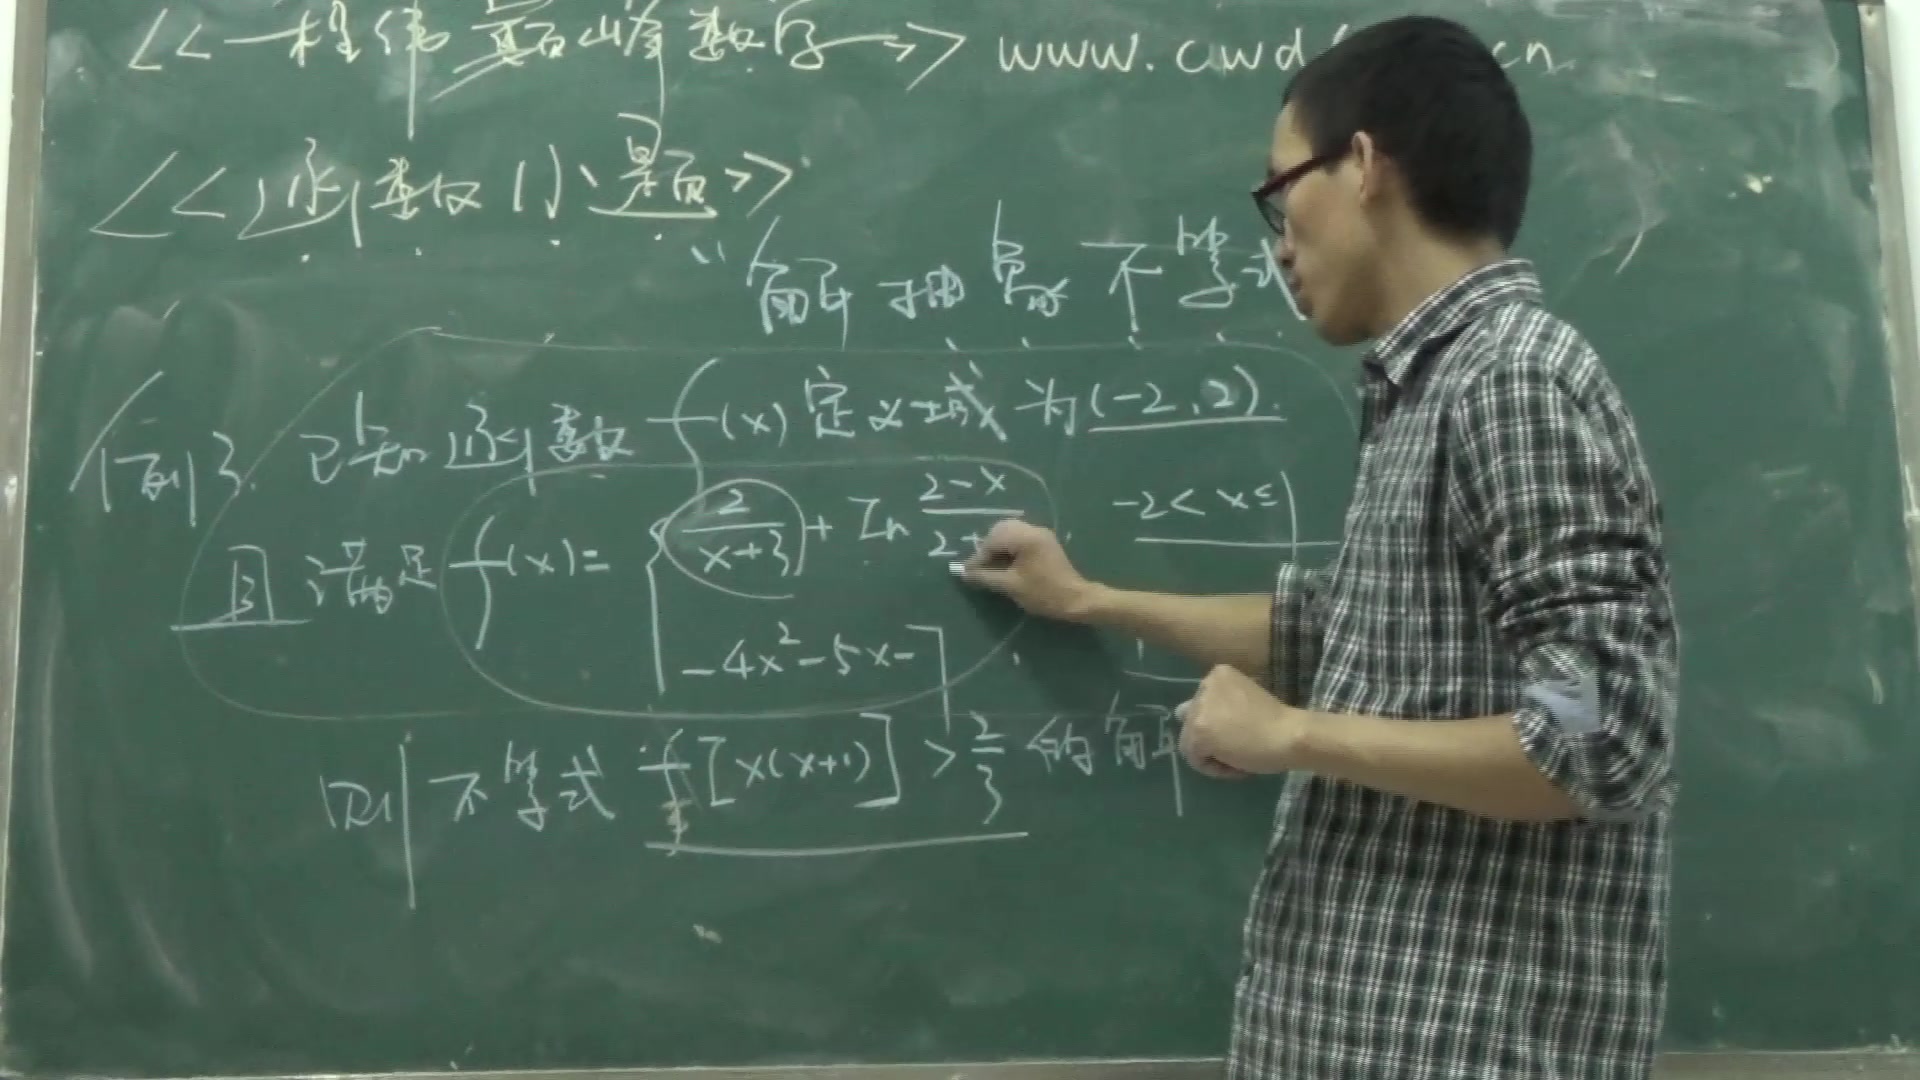 <<一程伟最高峰数学—>> www.cwd cn
<<函数小题>>
"解抽象不等式
例3. 已知函数f(x)定义域为(-2,2).
且满足f(x)= { 2/(x+3) + ln (2-x)/(2+ -2<x≤1
-4x²-5x-
则不等式f[x(x+1)]>2/3的解